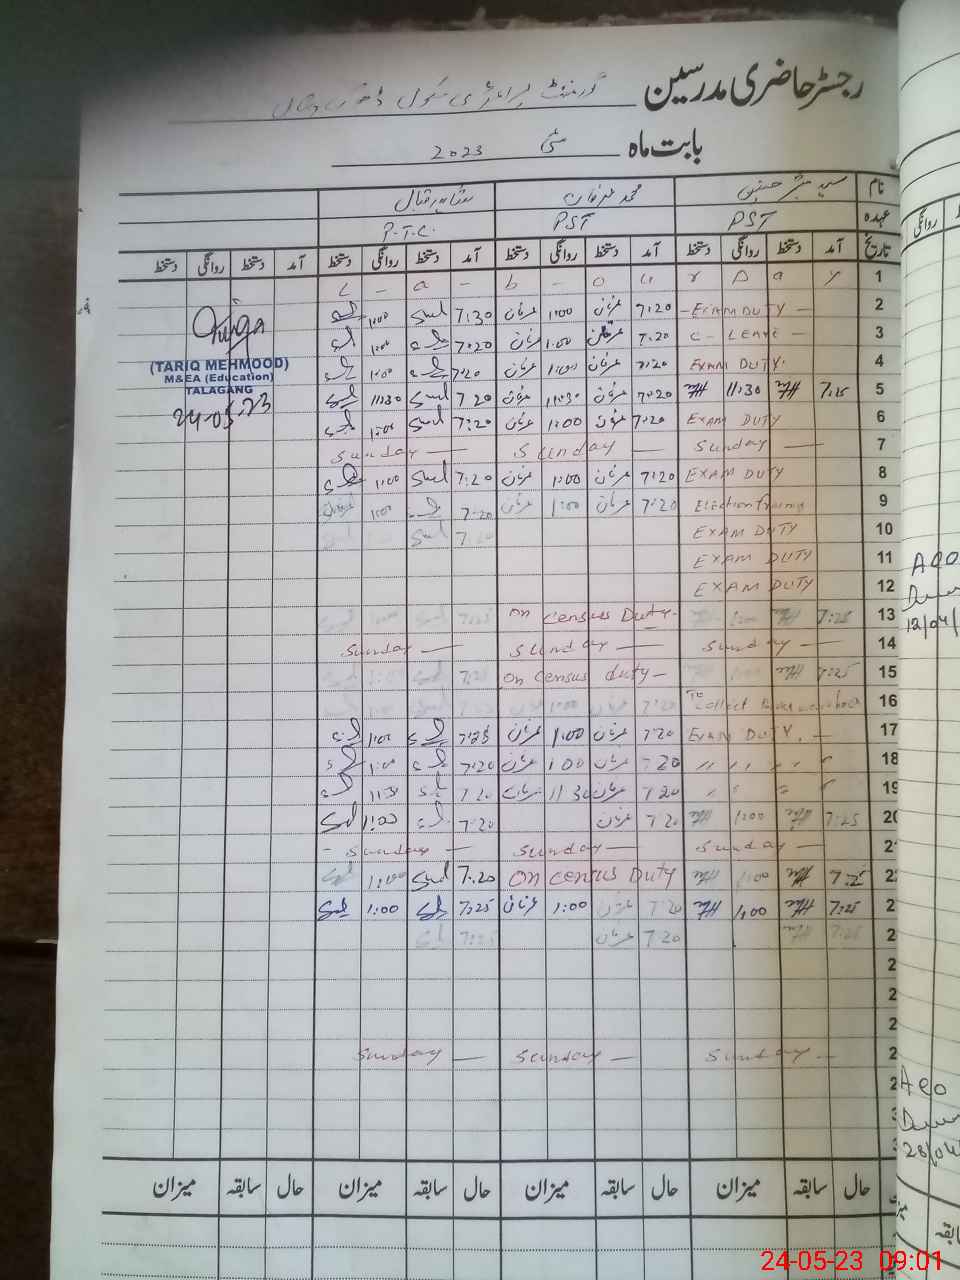 رجسٹر حاضری مدرسین گورنمنٹ پرائمری سکول
بابت ماہ مئی 2023
نام سید حسین محمد عرفان
عہدہ PST PST P.T.C.
تاریخ آمد دستخط روانگی دستخط آمد دستخط روانگی دستخط آمد دستخط روانگی دستخط آمد دستخط روانگی دستخط
1
2 - EXAM DUTY - 7:20 عرفان 1:00 عرفان 7:30 1:00
3 C - LEAVE - 7.20 عرفان 1:00 عرفان 7:20 1:00
4 EXAM DUTY. 7:20 عرفان 1:00 عرفان 7:20 1:00
5 7:25 11:30 7:20 عرفان 11:30 عرفان 7:20 11:30
6 EXAM DUTY 7:20 عرفان 1:00 عرفان 7:20 1:00
7 Sunday — Sunday — Sunday —
8 EXAM DUTY 7:20 عرفان 1:00 عرفان 7:20 1:00
9 Election Training 7:20 عرفان 1:00 عرفان 7:20 1:00
10 EXAM DUTY 7:20
11 EXAM DUTY
12 EXAM DUTY
13 7:25 1:00 On Census Duty- 7:25 1:00
14 Sunday — Sunday — Sunday —
15 7:25 On Census duty- 7:25 1:00
16 To Collect 7:20 عرفان 1:00 عرفان
17 EXAM DUTY. - 7:20 عرفان 1:00 عرفان 7:25 1:00
18 〃 〃 〃 〃 7:20 عرفان 1:00 عرفان 7:20 1:00
19 〃 〃 〃 〃 7:20 عرفان 11:30 عرفان 7:20 11:30
20 7:25 1:00 7:20 عرفان 7:20 1:00
2 Sunday — Sunday — - Sunday —
2 1:00 On Census Duty 7:20 1:00
2 7:25 1:00 7:20 عرفان 1:00 عرفان 7:25 1:00
2 7:25 7:20 عرفان 7:25
2
2
2
2 Sunday — Sunday — Sunday —
2
حال سابقہ میزان حال سابقہ میزان حال سابقہ میزان حال سابقہ میزان
(TARIQ MEHMOOD)
M&EA (Education)
TALAGANG
24-05-23
روانگی
AEO
12/04/
AEO
28/04/
24-05-23 09:01